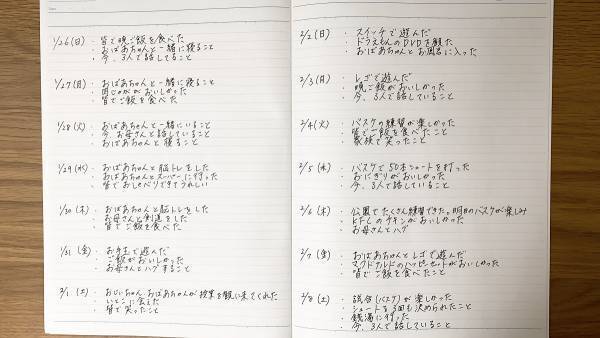 1/26(日)
・皆で晩ご飯を食べた
・おばあちゃんと一緒に寝ること
・今、3人で話してること
1/27(日)
・おばあちゃんと一緒に寝ること
がおいしかった
・皆でご飯を食べた
1/28(火)
・おばあちゃんと一緒にいること
・今、お母さんと話していること
・おばあちゃんと寝ること
1/29(水)
・おばあちゃんと脳トレをした
・おばあちゃんとスーパーに行った
・皆でおしゃべりできてうれしい
1/30(木)
・おばあちゃんと脳トレをした
・お母さんと剣道をした
・皆でご飯を食べた
1/31(金)
・お手玉で遊んだ
・ご飯がおいしかった
・お母さんとハグすること
2/1(土)
・おじいちゃん、おばあちゃんが授業を観に来てくれた
・いとこに会えた
・皆で笑ったこと
2/2(日)
・スイッチで遊んだ
・ドラえもんのDVDを観た
・おばあちゃんとお風呂に入った
2/3(月)
・レゴで遊んだ
・晩ご飯がおいしかった
・今、3人で話していること
2/4(火)
・バスケの練習が楽しかった
・皆でご飯を食べたこと
・家族で笑ったこと
2/5(水)
・バスケで50本シュートを打った
・おにぎりがおいしかった
・今、3人で話していること
2/6(木)
・公園でたくさん練習できた。明日のバスケが楽しみ
・KFCのチキンがおいしかった
・お母さんとハグ
2/7(金)
・おばあちゃんとレゴで遊んだ
・マクドナルドのハッピーセットがおいしかった
・皆でご飯を食べたこと
2/8(土)
・試合(バスケ)が楽しかった
・シュートを3回も決められたこと
・銭湯に行った
・今、3人で話していること